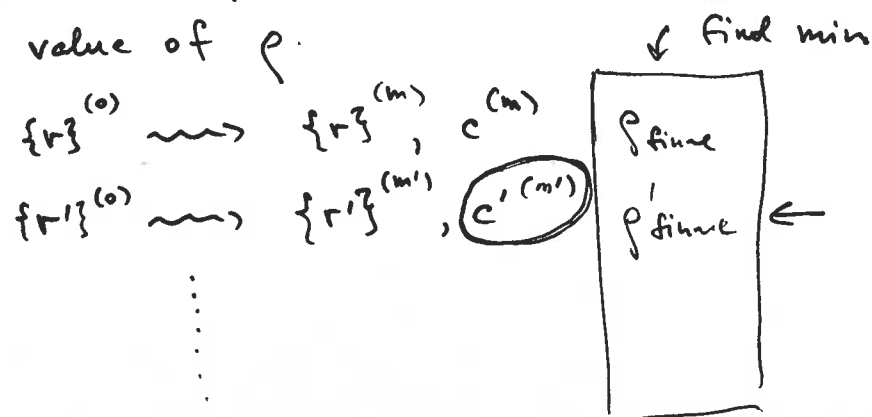 value of ρ.
↓ find min
{r}⁽⁰⁾ ⟿ {r}⁽ᵐ⁾, c⁽ᵐ⁾ ρ final
{r'}⁽⁰⁾ ⟿ {r'}⁽ᵐ'⁾, c'⁽ᵐ'⁾ ρ' final ←